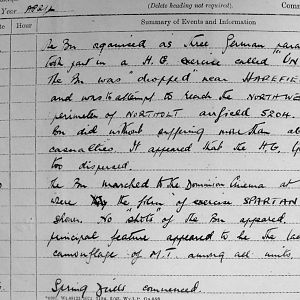 Year APRIL
(Delete heading not required).
Comma
Date Hour Summary of Events and Information
The Bn organised as three German para
took part in a H.G. exercise called "UN
The Bn was "dropped" near HAREFIE
and was to attempt to reach the NORTHWE
perimeter of NORTHOLT airfield SROH.
Bn did without suffering more than ab
casualties. It appeared that the H.G. (
too dispersed.
The Bn marched to the Dominion Cinema at
were the "film" of exercise SPARTAN
shown. No "shots" of the Bn appeared.
principal feature appeared to be the lac
camouflage of M.T. among all units.
Spring Drills commenced.